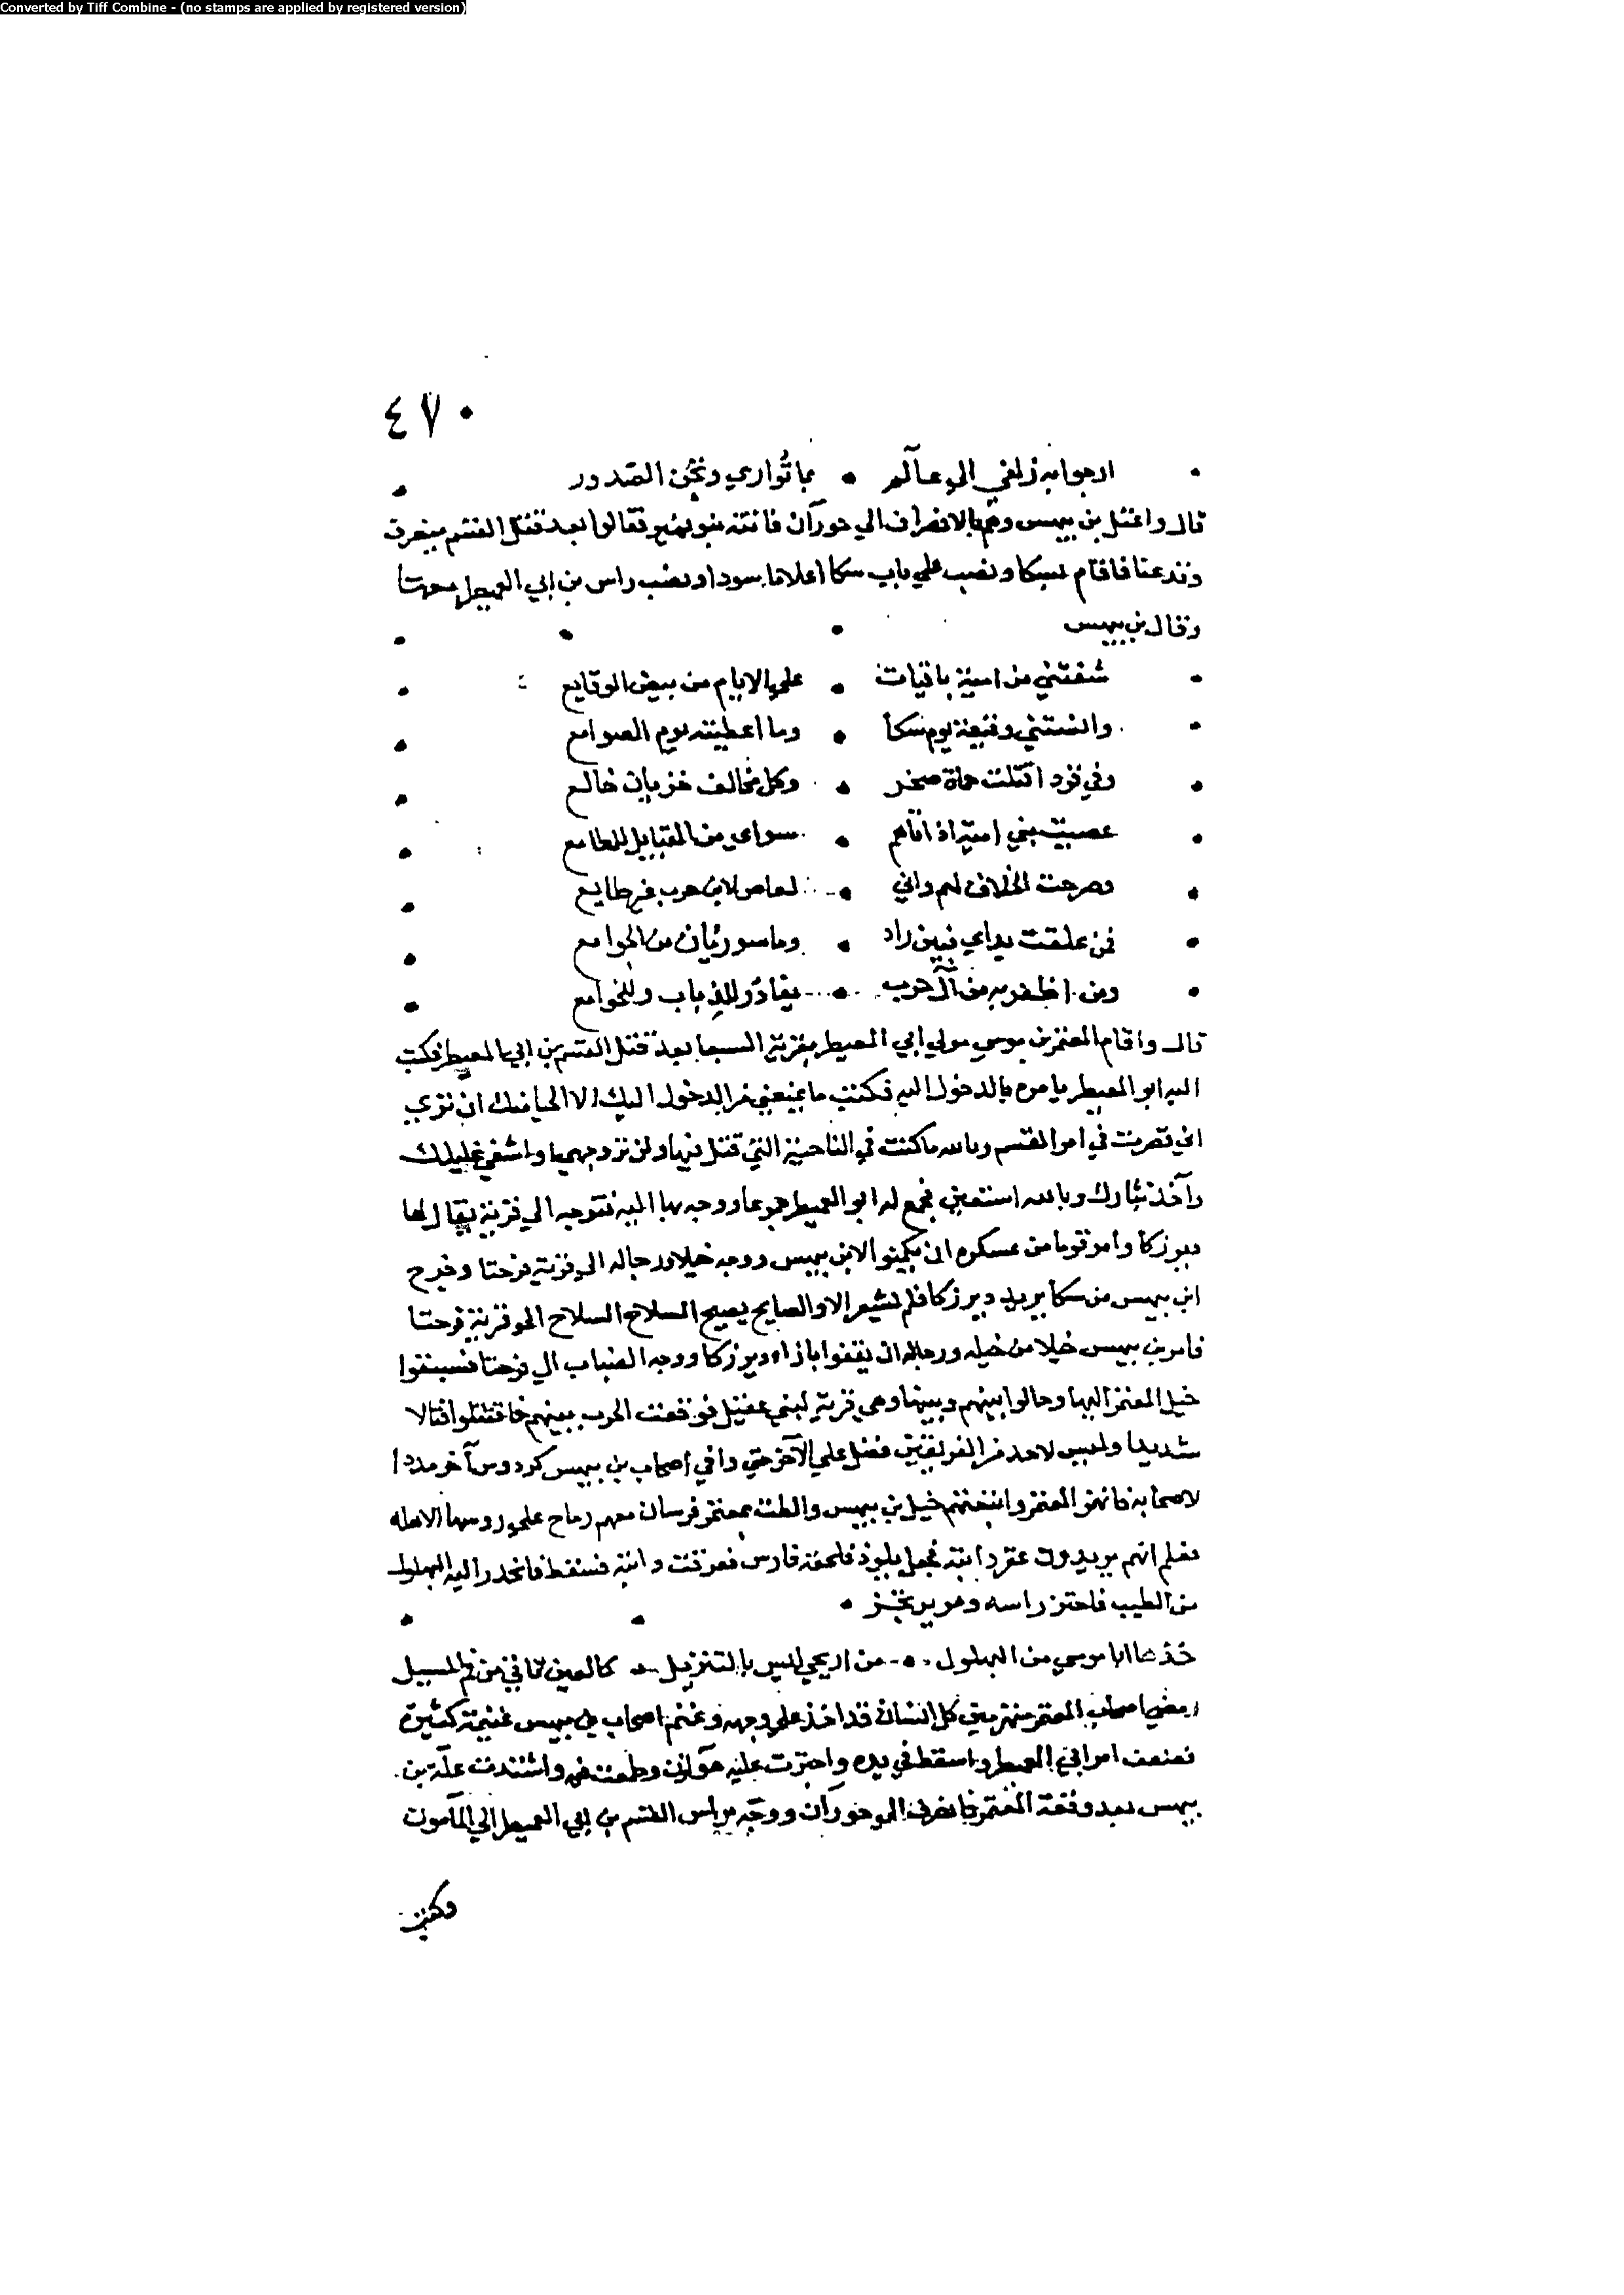 Converted by Tiff Combine - (no stamps are applied by registered version)
٤٧٠
ارجوا به زلفي الي عالم • بما تُواري وتجُن الصَدور
قال واعتل بن بيهس وهم بالانصراف الي حوران فاتته بنو نمير فقالوا بعد قتل القسم ينصرف
وتدعنا فاقام بسكا ونصب علي باب سكا اعلاما سودا ونصب راس بن ابي العميطر
وقال بن بيهس
شفتني من امية باقيات • علي الايام من بيض الوقايع
وقيعة يوم سكا • وما اعطيته يوم الصوامع
حماة صخر • وكل مخالف خزيان خالع
عصيت بني امية اذ اتاهم • سواي من القبايل للمطامع
الخلاف لهم واني • لعاص لابن حرب غير طايع
فمن علقت يداي فبين راد • وماسوريان من الجوامع
ومن اظفر به من آل حرب • يغادر للذياب وللخوامع
قال واقام المعتمر بن موسي مولي ابي العميطر بقرية بعد قتل القسم بن ابي العميطر فكتب
اليه ابو العميطر يامره بالدخول اليه فكتب ما يمنعني من الدخول اليك الا الحيا منك ان تري
اني قصرت في امر القسم وبالله ما كنت في الناحية التي قتل فيها ولن تر وجهي او اشفي غليلك
وآخذ بثارك وبالله استعين فجمع له ابو العميطر جموعا ووجه بها اليه فتوجه الي قرية يقال لها
ديرزكا وامر قوما من عسكره ان يكمنوا لابن بيهس ووجه خيلا ورجاله الي قرية قرحتا وخرج
ابن بيهس من سكا يريد ديرزكا فلم يشعر الا والصايح يصيح السلاح السلاح الي قرية قرحتا
فامر بن بيهس خيلا من خيله ورجاله ان يقفوا بازاء ديرزكا ووجه الضباب الي قرحتا فسبقوا
خيل المعتمر اليها وحالوا بينهم وبينها وهي قرية لبني عقيل فوقعت الحرب بينهم فاقتتلوا قتالا
شديدا وليس لاحد من الفريقين فضل علي الآخر حتي وافي اصحاب بن بيهس كردوس آخر مددا
لاصحابه فانهزم المعتمر واتبعتهم خيل بن بيهس والظت بمعتمر فرسان معهم رماح علي روسها الاهله
فعلم انهم يريدون عقر دابته فجعل يلوذ فلحقه فارس فعرقب دابته فسقط فانحدر اليه البهلول
من الطيب فاحتز راسه وهو يرتجز
خذها ابا موسي من البهلول • من اريحي ليس بالتنزيل • كالعين تاني من فم السبيل
ومضي اصحاب المعتمر منهزمين كل انسان قد اخذ علي وجهه وغنم اصحاب بن بيهس غنيمة كثيرة
فضعف امر ابي العميطر واسقط في يده واجترت عليه هوازن وطمعت فيه واشتدت علة بن
بيهس بعد وقعة المعتمر فانصرف الي حوران ووجه براس القسم بن ابي العميطر الي المامون
وكتب